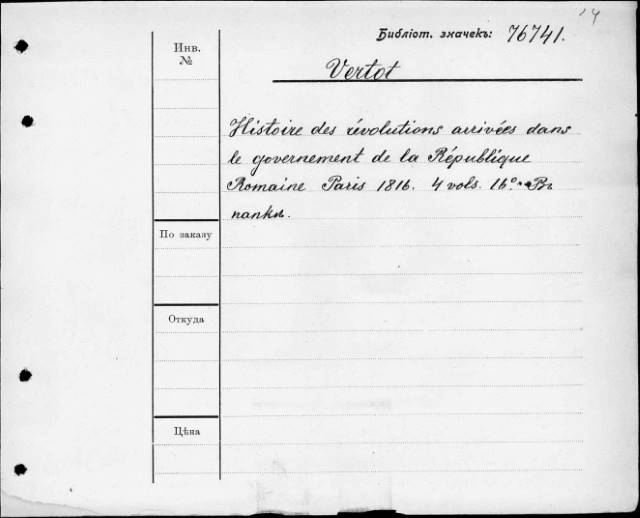 Библіот. значекъ: 76741.
Инв.
№
Vertot
Histoire des révolutions arrivées dans
le governement de la République
Romaine Paris 1816. 4 vols. 16°. Въ
папкѣ.
По заказу
Откуда
Цѣна